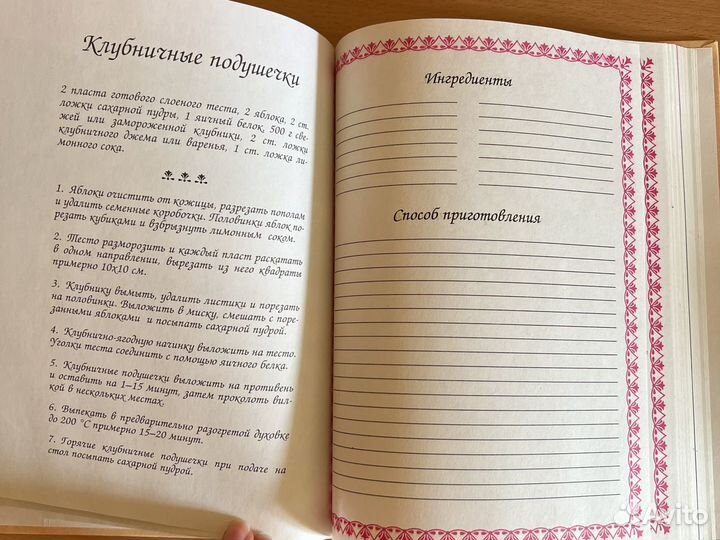 Клубничные подушечки
2 пласта готового слоеного теста, 2 яблока, 2 ст.
ложки сахарной пудры, 1 яичный белок, 500 г све-
жей или замороженной клубники, 2 ст. ложки
клубничного джема или варенья, 1 ст. ложка ли-
монного сока.
1. Яблоки очистить от кожицы, разрезать пополам
и удалить семенные коробочки. Половинки яблок по-
резать кубиками и взбрызнуть лимонным соком.
2. Тесто разморозить и каждый пласт раскатать
в одном направлении, вырезать из него квадраты
примерно 10х10 см.
3. Клубнику вымыть, удалить листики и порезать
на половинки. Выложить в миску, смешать с поре-
занными яблоками и посыпать сахарной пудрой.
4. Клубнично-ягодную начинку выложить на тесто.
Уголки теста соединить с помощью яичного белка.
5. Клубничные подушечки выложить на противень
и оставить на 1–15 минут, затем проколоть вил-
кой в нескольких местах.
6. Выпекать в предварительно разогретой духовке
до 200 °С примерно 15–20 минут.
7. Горячие клубничные подушечки при подаче на
стол посыпать сахарной пудрой.
Ингредиенты
Способ приготовления
Avito